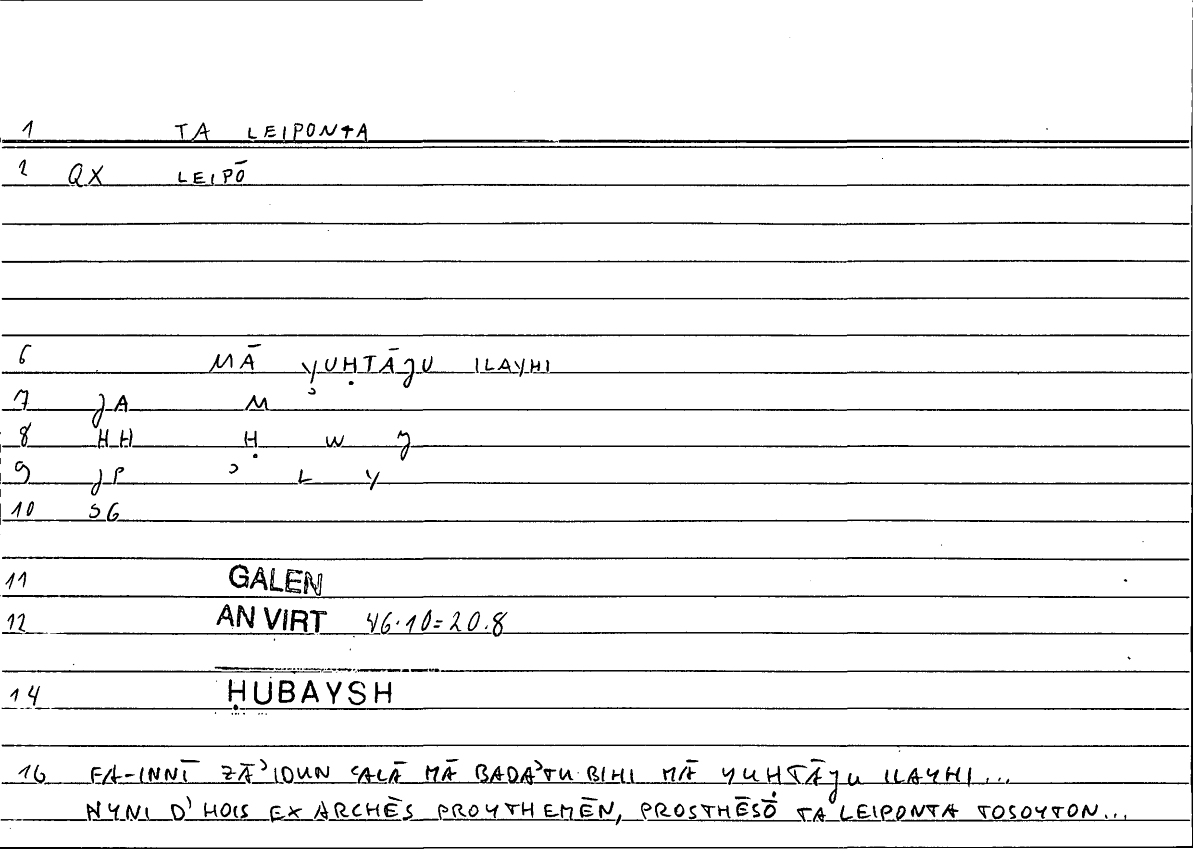 1 TA LEIPONTA
2 QX LEIPŌ
6 MĀ YUḤTĀJU ILAYHI
7 JA M ʾ
8 HH Ḥ W J
9 JP ʾ L Y
10 SG
11 GALEN
12 AN VIRT 46.10=20.8
14 ḤUBAYSH
16 FA-INNĪ ZĀʾIDUN ʿALĀ MĀ BADAʾTU BIHI MĀ YUHTĀJU ILAYHI...
NYNI D' HOIS EX ARCHĒS PROYTHEMĒN, PROSTHĒSŌ TA LEIPONTA TOSOYTON...